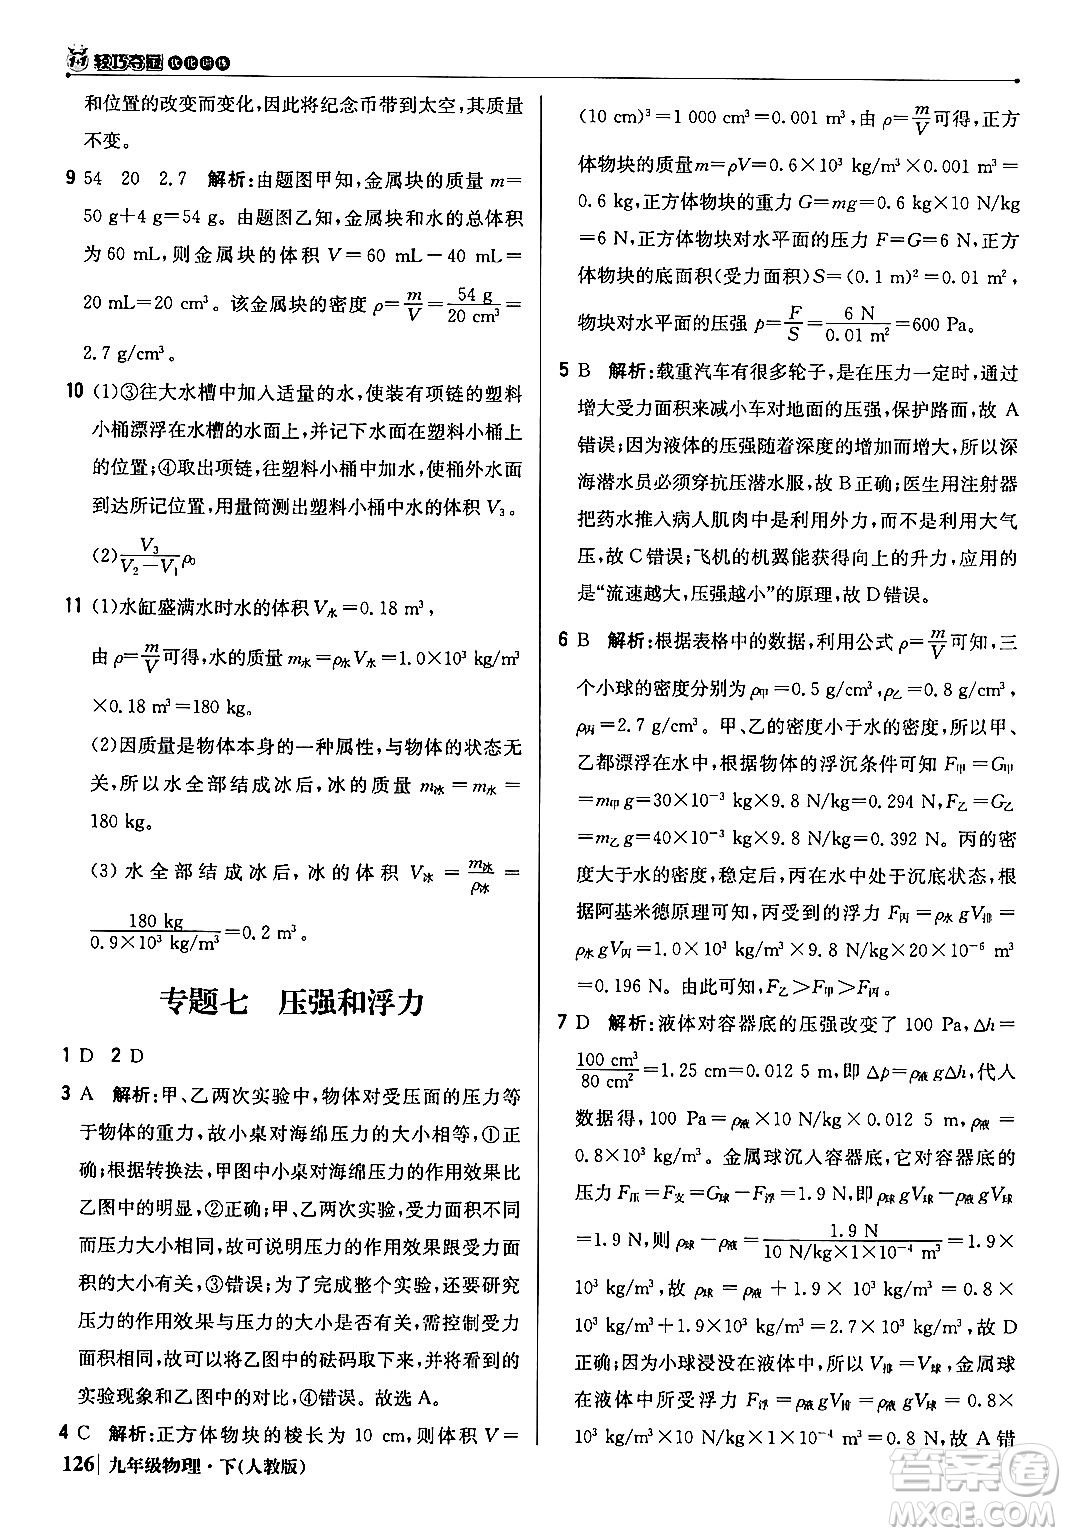 1+1 轻巧夺冠 优化训练
和位置的改变而变化,因此将纪念币带到太空,其质量
不变。
9 54 20 2.7 解析:由题图甲知,金属块的质量 m=
50 g+4 g=54 g。由题图乙知,金属块和水的总体积
为60 mL,则金属块的体积 V=60 mL-40 mL=
20 mL=20 cm³。该金属块的密度 ρ=m/V=54 g/20 cm³=
2.7 g/cm³。
10 (1)③往大水槽中加入适量的水,使装有项链的塑料
小桶漂浮在水槽的水面上,并记下水面在塑料小桶上
的位置;④取出项链,往塑料小桶中加水,使桶外水面
到达所记位置,用量筒测出塑料小桶中水的体积 V₃。
(2)V₃/(V₂-V₁)ρ₀
11 (1)水缸盛满水时水的体积 V水=0.18 m³,
由 ρ=m/V可得,水的质量 m水=ρ水V水=1.0×10³ kg/m³
×0.18 m³=180 kg。
(2)因质量是物体本身的一种属性,与物体的状态无
关,所以水全部结成冰后,冰的质量 m冰=m水=
180 kg。
(3)水全部结成冰后,冰的体积 V冰=m冰/ρ冰=
180 kg/(0.9×10³ kg/m³)=0.2 m³。
专题七 压强和浮力
1 D 2 D
3 A 解析:甲、乙两次实验中,物体对受压面的压力等
于物体的重力,故小桌对海绵压力的大小相等,①正
确;根据转换法,甲图中小桌对海绵压力的作用效果比
乙图中的明显,②正确;甲、乙两次实验,受力面积不同
而压力大小相同,故可说明压力的作用效果跟受力面
积的大小有关,③错误;为了完成整个实验,还要研究
压力的作用效果与压力的大小是否有关,需控制受力
面积相同,故可以将乙图中的砝码取下后,将看到的
实验现象和乙图的对比,④错误。故选 A。
4 C 解析:正方体物块的棱长为 10 cm,则体积 V=
126 九年级物理·下(人教版)
(10 cm)³=1 000 cm³=0.001 m³,由 ρ=m/V可得,正方
体物块的质量m=ρV=0.6×10³ kg/m³×0.001 m³=
0.6 kg,正方体物块的重力 G=mg=0.6 kg×10 N/kg
=6 N,正方体物块对水平面的压力 F=G=6 N,正方
体物块的底面积(受力面积)S=(0.1 m)²=0.01 m²,
物块对水平面的压强 p=F/S=6 N/0.01 m²=600 Pa。
5 B 解析:载重汽车有很多轮子,是在压力一定时,通过
增大受力面积来减小车对地面的压强,保护路面,故 A
错误;因为液体的压强随着深度的增加而增大,所以深
海潜水员必须穿抗压潜水服,故 B 正确;医生用注射器
把药水推入病人肌肉中是利用外力,而不是利用大气
压,故 C 错误;飞机的机翼能获得向上的升力,应用的
是“流速越大,压强越小”的原理,故 D 错误。
6 B 解析:根据表格中的数据,利用公式 ρ=m/V可知,三
个小球的密度分别为 ρ甲=0.5 g/cm³,ρ乙=0.8 g/cm³,
ρ丙=2.7 g/cm³。甲、乙的密度小于水的密度,所以甲、
乙都漂浮在水中,根据物体的浮沉条件可知 F甲=G甲
=m甲g=30×10⁻³ kg×9.8 N/kg=0.294 N,F乙=G乙
=m乙g=40×10⁻³ kg×9.8 N/kg=0.392 N。丙的密
度大于水的密度,稳定后,丙在水中处于沉底状态,根
据阿基米德原理可知,丙受到的浮力 F丙=ρ水gV排=
ρ水gV丙=1.0×10³ kg/m³×9.8 N/kg×20×10⁻⁶ m³
=0.196 N。因此,F乙>F甲>F丙。
7 D 解析:液体对容器底的压强改变了 100 Pa,Δh=
100 cm³/80 cm²=1.25 cm=0.012 5 m,即 Δp=ρ液gΔh,代入
数据得,100 Pa=ρ液×10 N/kg×0.012 5 m,ρ液=
0.8×10³ kg/m³。金属球沉入容器底,它对容器底的
压力 F压=F支=G球-F浮=1.9 N,即 ρ球gV球-ρ液gV球
=1.9 N,则 ρ球-ρ液=1.9 N/(10 N/kg×1×10⁻⁴ m³)=1.9×
10³ kg/m³,故 ρ球=ρ液+1.9×10³ kg/m³=0.8×
10³ kg/m³+1.9×10³ kg/m³=2.7×10³ kg/m³,故 D
正确;因为小球浸没在液体中,所以 V排=V球,金属球
在液体中所受浮力 F浮=ρ液gV排=ρ液gV球=0.8×
10³ kg/m³×10 N/kg×1×10⁻⁴ m³=0.8 N,故 A 错
答案圈
MXQE.COM